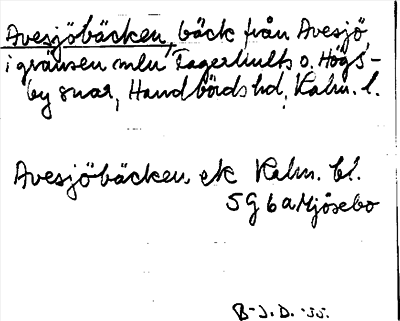 Avesjöbäcken, bäck från Avesjö
i gränsen mln Fagerhults o. Högs-
by snar, Handbörds hd, Kalm. l.
Avesjöbäcken ek Kalm. bl.
5G 6a Mjösebo
B-J.D. -55.